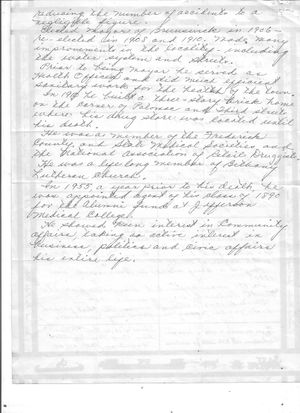 reducing the number of accidents to a
negligible figure.
Elected Mayor of Brunswick in 1906 -
re-elected in 1908 and 1910. Made many
improvements in the locality - including
the water system and streets.
Prior to being mayor he served as
Health Officer and did much special
sanitary work for the health of the town
In 1908 he built a three-story brick home
on the corner of Potomac and Third street
where his drug store was located until
his death.
He was a member of the Frederick
County and State Medical Societies and
the National Association of Retail Druggists.
He was a life long member of Bethany
Lutheran Church.
In 1955, a year prior to his death, he
was appointed agent of his class of 1890
for the Alumni Fund at Jefferson
Medical College.
He showed keen interest in Community
affairs, taking an active interest in
business, politics and civic affairs
his entire life.